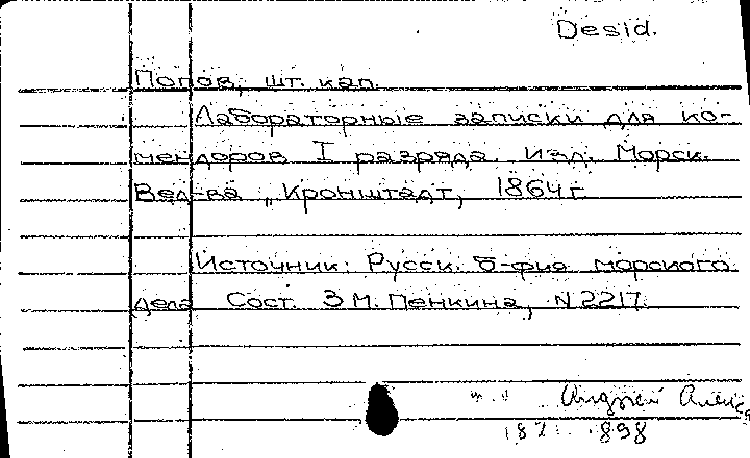 Desid.
Попов, шт. кап.
Лабораторные записки для ко-
мендоров I разряда. Изд. Морск.
Вед-ва, Кронштадт, 1864 г.
Источник: Русск. б-фия морского
дела Сост. З М. Пенкина, N 2217.
Андрей Алекс
898